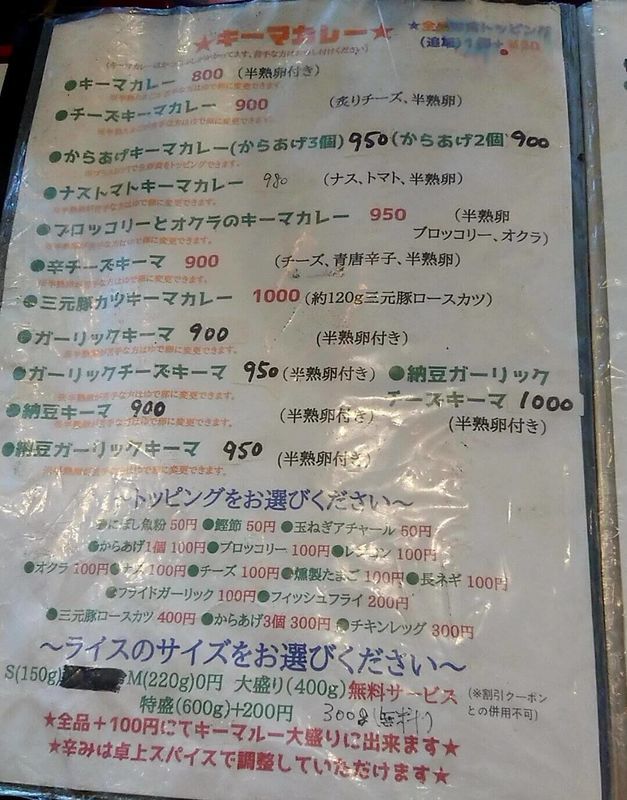 ★キーマカレー★
★全品
(追加)
●キーマカレー 800 (半熟卵付き)
●チーズキーマカレー 900 (炙りチーズ、半熟卵)
●からあげキーマカレー(からあげ3個) 950 (からあげ2個 900
●ナストマトキーマカレー 980 (ナス、トマト、半熟卵)
●ブロッコリーとオクラのキーマカレー 950 (半熟卵
ブロッコリー、オクラ)
●辛チーズキーマ 900 (チーズ、青唐辛子、半熟卵)
●三元豚カツキーマカレー 1000 (約120g三元豚ロースカツ)
●ガーリックキーマ 900 (半熟卵付き)
※半熟卵が苦手な方はゆで卵に変更できます。
●ガーリックチーズキーマ 950 (半熟卵付き)
※半熟卵が苦手な方はゆで卵に変更できます。
●納豆ガーリック
チーズキーマ 1000
(半熟卵付き)
●納豆キーマ 900 (半熟卵付き)
※半熟卵が苦手な方はゆで卵に変更できます。
●納豆ガーリックキーマ 950 (半熟卵付き)
※半熟卵が苦手な方はゆで卵に変更できます。
～トッピングをお選びください～
●にぼし魚粉 50円 ●鰹節 50円 ●玉ねぎアチャール 50円
●からあげ1個 100円 ●ブロッコリー 100円 ●レンコン 100円
●オクラ 100円 ●ナス 100円 ●チーズ 100円 ●燻製たまご 100円 ●長ネギ 100円
●フライドガーリック 100円 ●フィッシュフライ 200円
●三元豚ロースカツ 400円 ●からあげ3個 300円 ●チキンレッグ 300円
～ライスのサイズをお選びください～
S(150g) M(220g)0円 大盛り(400g)無料サービス (※割引クーポン
との併用不可)
特盛(600g)+200円 300g(無料)
★全品＋100円にてキーマルー大盛りに出来ます★
★辛みは卓上スパイスで調整していただけます★